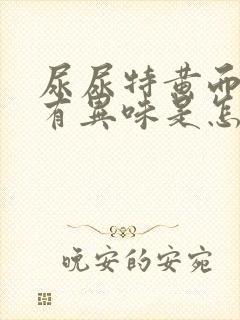 尿尿特黄而
有異味是怎
晚安的安宛